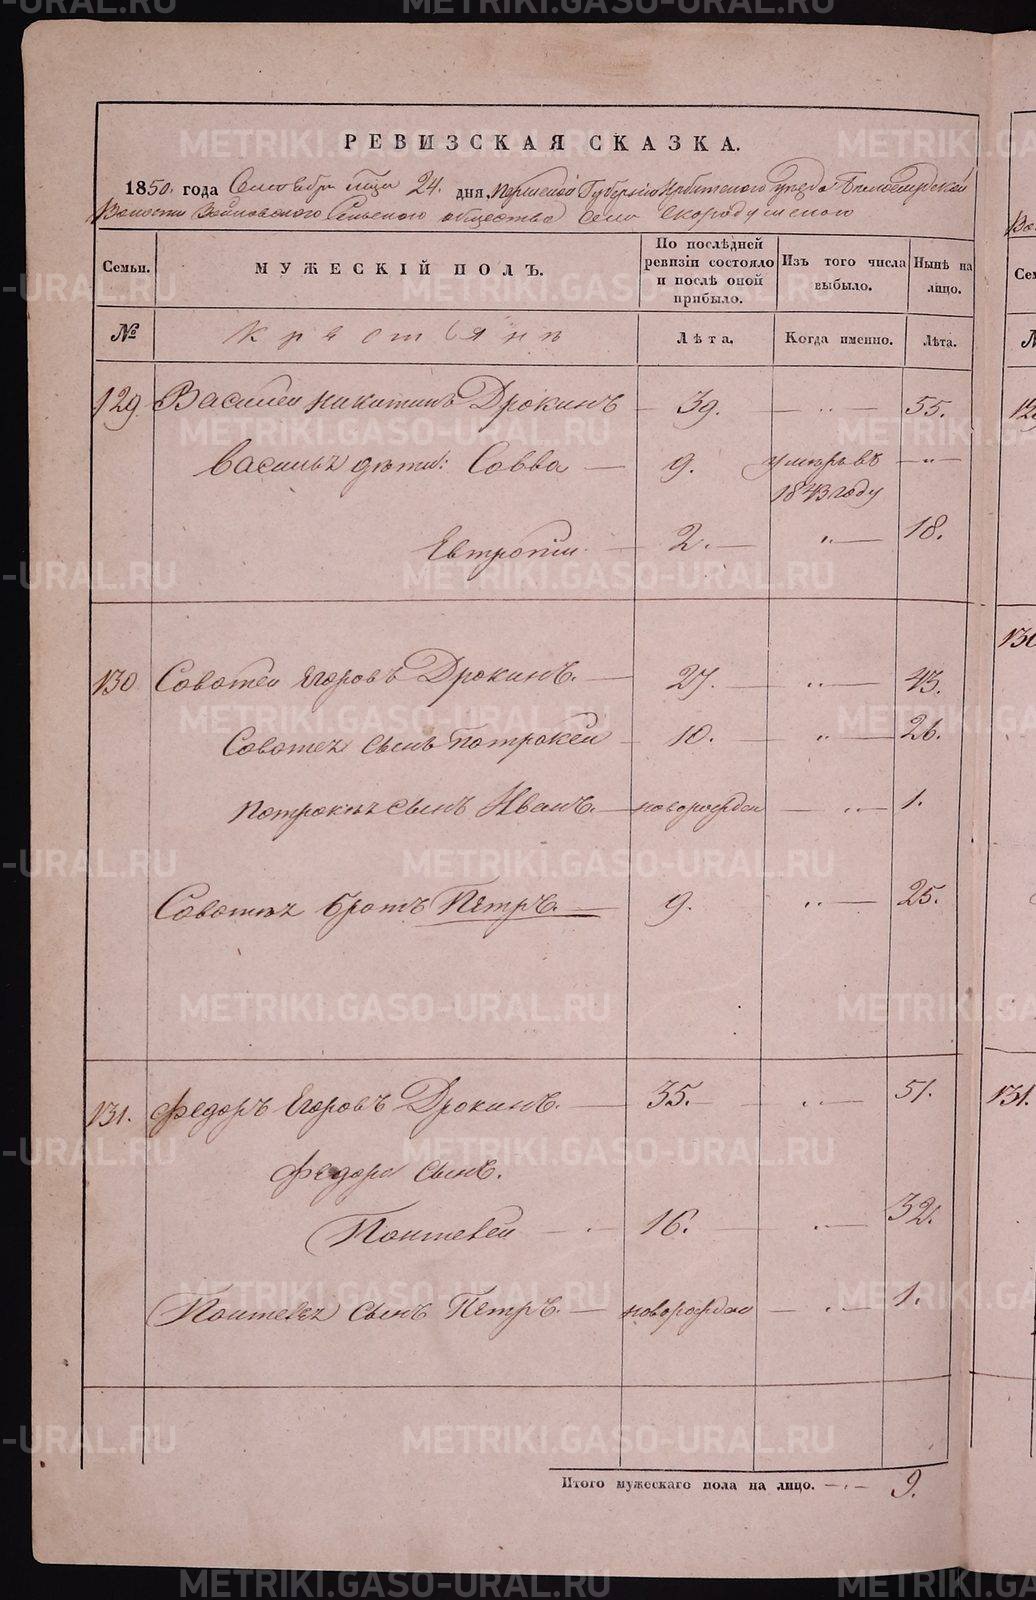 РЕВИЗСКАЯ СКАЗКА.
1850. года Сентября мца 24. дня, Пермской Губернiи Ирбитского Уезда Белослудской
Волости Зайковского Сельского общества Села Скородумского
Семьи. МУЖЕСКІЙ ПОЛЪ. По послѣдней ревизіи состояло и послѣ оной прибыло. Изъ того числа выбыло. Нынѣ на лицо.
№ Крестьяне Лѣта. Когда именно. Лѣта.
129. Василеи Никитинъ Дрокинъ — 39. — „ — 55.
Васильz дѣти: Савва — 9. умеръ въ 1843 году — „ —
Евтропiи — 2. — „ — 18.
130 Савотеи Егоровъ Дрокинъ. — 27. — „ — 43.
Савотеz сынъ Потрокеи — 10. „ — 26.
Потрокеz сынъ Иванъ. — новорожден — „ — 1.
Савотеz братъ Петръ. — 9. — „ — 25.
131. Федоръ Егоровъ Дрокинъ. — 35. — „ — 51.
Федора сынъ.
Понтелеи — 16. — „ — 32.
Понтелеz сынъ Петръ. — новорожден — „ — 1.
Итого мужескаго пола на лицо. — „ — 9.
129
130
131.
METRIKI.GASO-URAL.RU